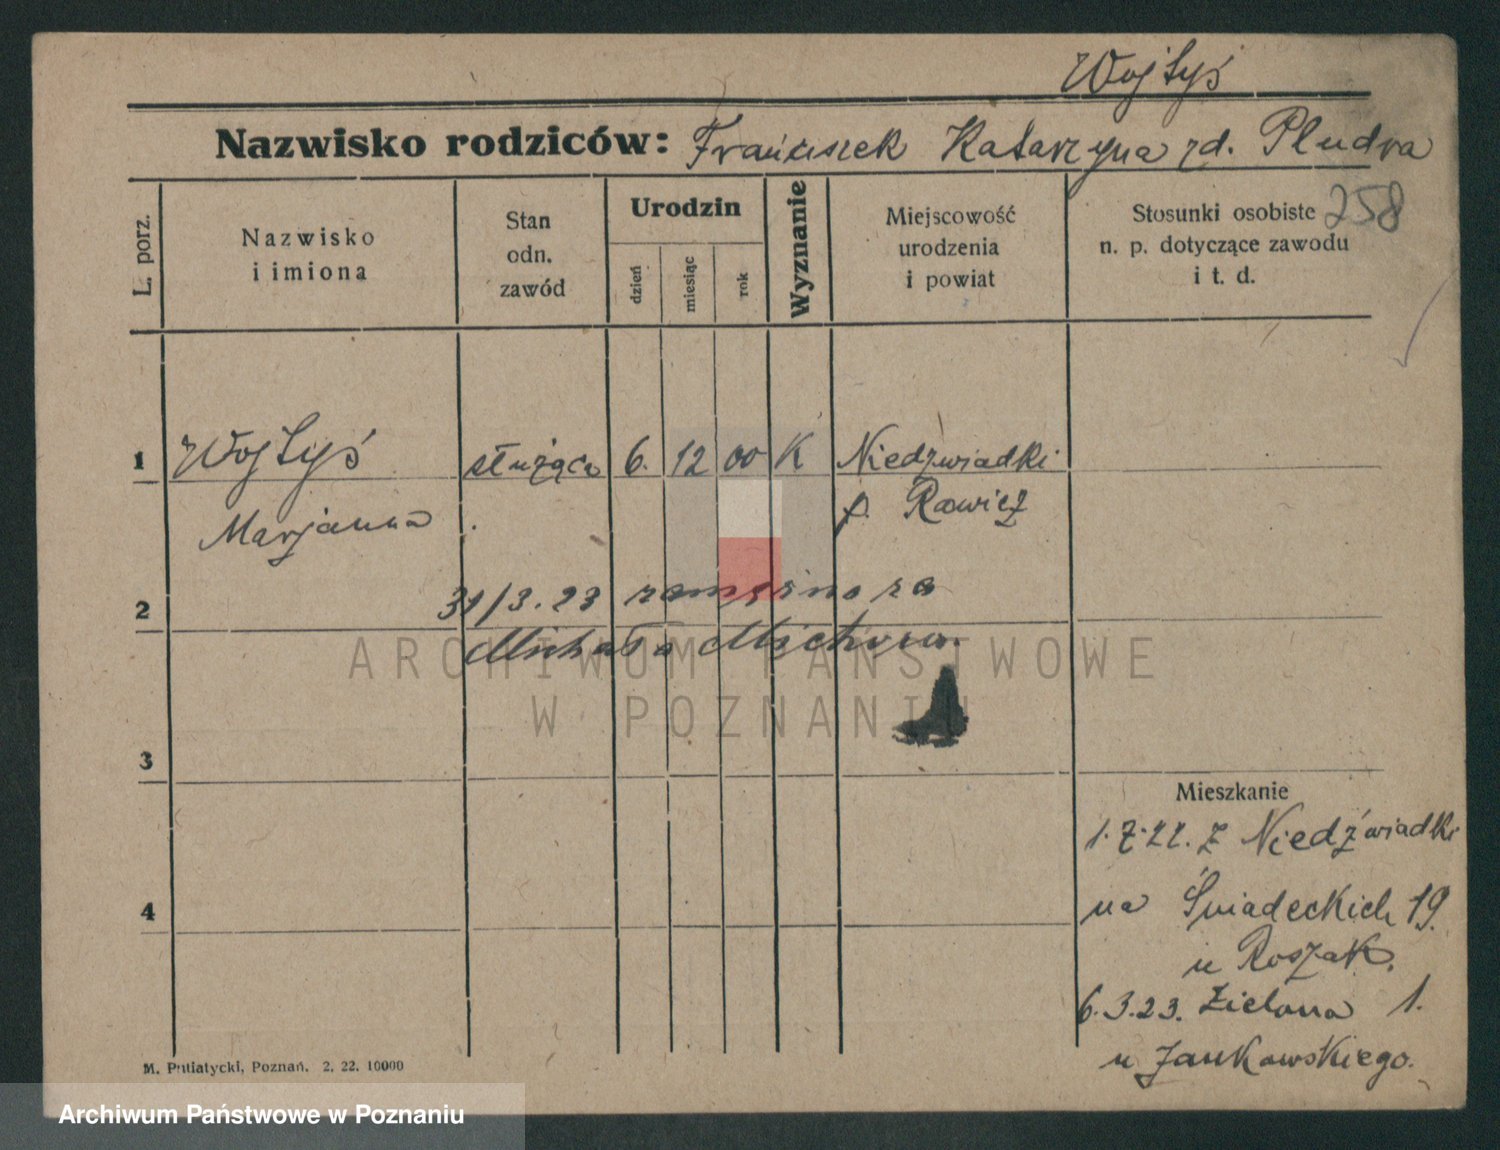 Wojtyś
Nazwisko rodziców: Franciszek Katarzyna zd. Pludra
258
L. porz.
Nazwisko
i imiona
Stan
odn.
zawód
Urodzin
dzień
miesiąc
rok
Wyznanie
Miejscowość
urodzenia
i powiat
Stosunki osobiste
n. p. dotyczące zawodu
i t. d.
1 Wojtyś służąca 6. 12 00 K Niedzwiadki
Marjanna p. Rawicz
2 31/3.23 za
Michała
3
4
Mieszkanie
1.7.22. z Niedźwiadki
na Śniadeckich 19.
u Roszak.
6.3.23. Zielona 1.
u Jankowskiego.
M. Putiatycki, Poznań. 2. 22. 10000
ARCHIWUM PAŃSTWOWE
W POZNANIU
Archiwum Państwowe w Poznaniu